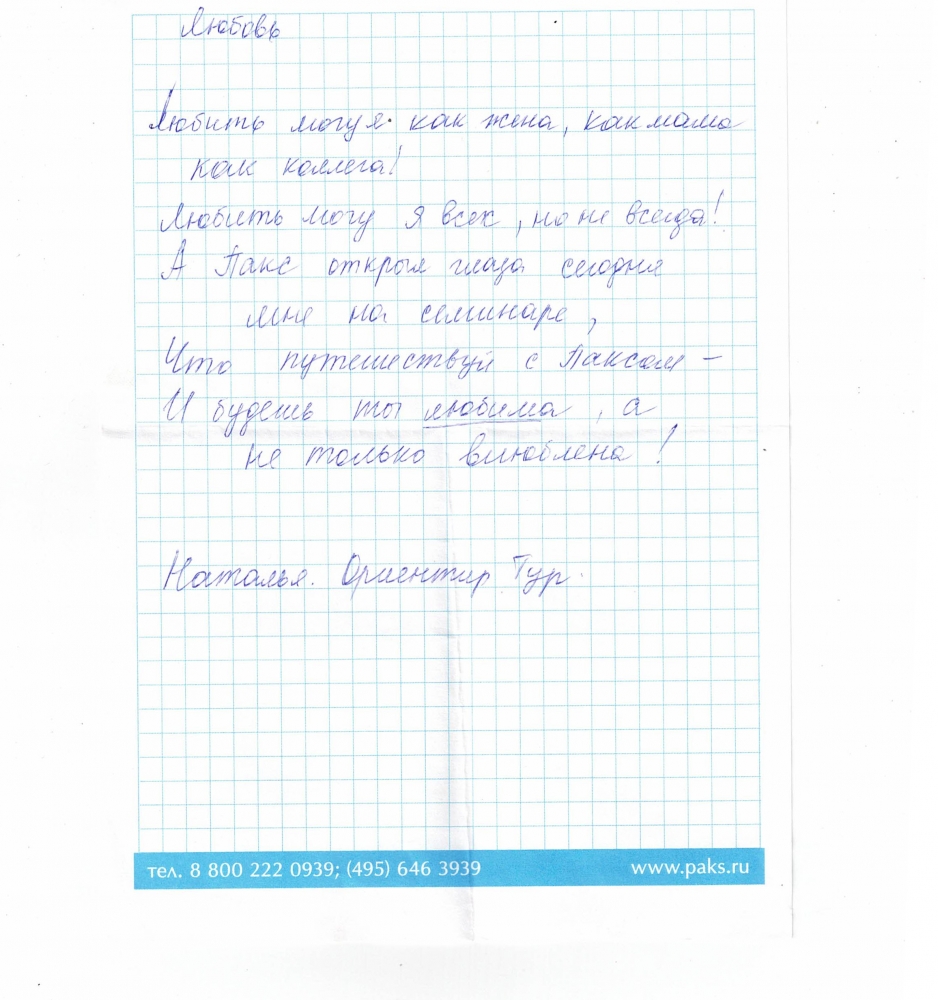 Любовь
Любить могу я как жена, как мама
как коллега!
Любить могу я всех, но не всегда!
А Пакс открыл глаза сегодня
мне на семинаре,
Что путешествуй с Паксом –
И будешь ты любима, а
не только влюблена!
Наталья. Ориентир Тур.
тел. 8 800 222 0939; (495) 646 3939
www.paks.ru